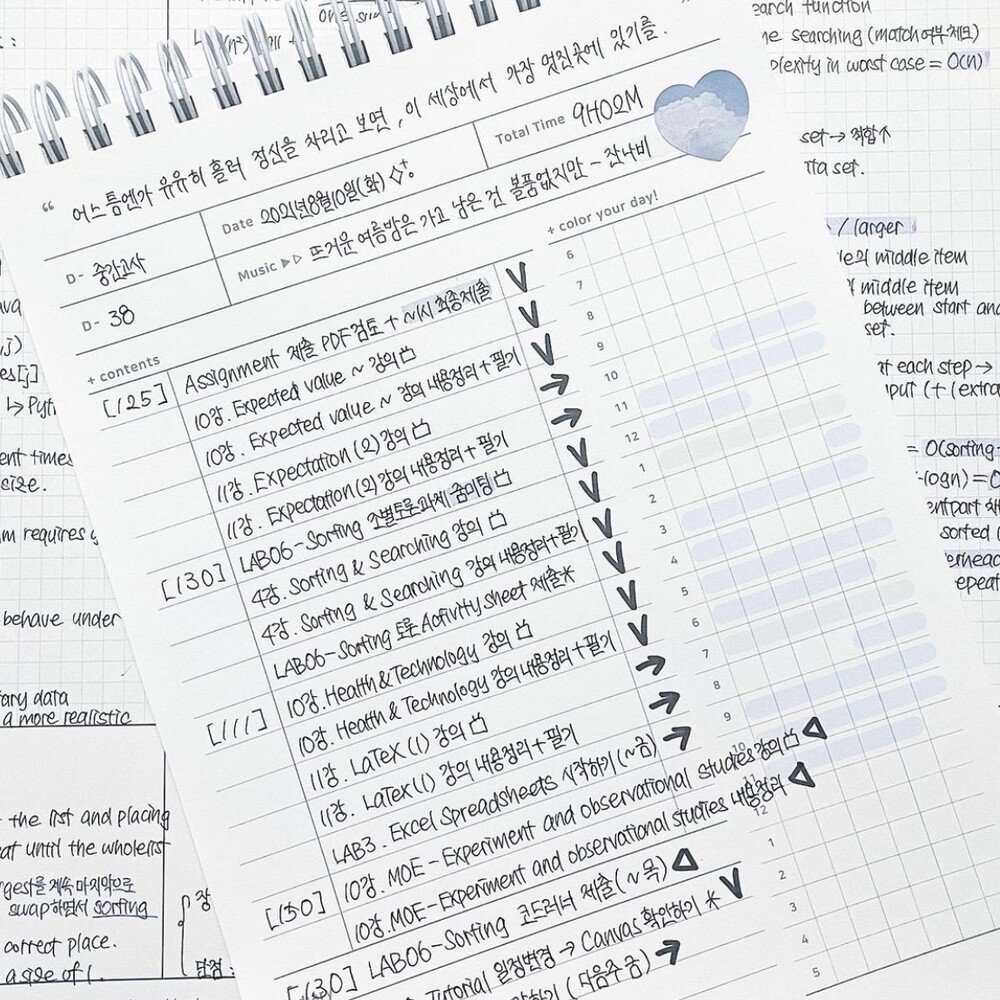 “ 어스름엔 유유히 흘러 정신을 차리고 보면, 이 세상에서 가장 멋진곳에 있기를.
D- 중간고사
Date 2021년8월10일(화)
Total Time 9H02M
D- 38
Music ▷▷ 뜨거운 여름밤은 가고 남은 건 볼품없지만 - 잔나비
+ contents
+ color your day!
[125] Assignment 제출 PDF검토 + ~1시 최종제출 V
10강. Expected value ~ 강의 V
10강. Expected value ~ 강의 내용정리+필기 V
11강. Expectation (2) 강의 →
11강. Expectation(2) 강의 내용정리+필기 →
LAB06-Sorting 조별토론과제 줌미팅 V
[130] 4강. Sorting & Searching 강의 V
4강. Sorting & Searching 강의 내용정리+필기 V
LAB06-Sorting 토론 Activity sheet 제출* V
10강. Health & Technology 강의 V
10강. Health & Technology 강의 내용정리+필기 V
[111] 11강. LaTeX (1) 강의 →
11강. LaTeX(1) 강의 내용정리+필기 →
LAB3. Excel Spreadsheets 시작하기(~금) →
10강. MOE - Experiment and observational studies 강의 △
10강. MOE-Experiment and observational studies 내용정리 △
[150] LAB06-Sorting 코드러너 제출(~목) △
[130] Tutorial 일정변경 → Canvas 확인하기 * V
하기 (다음주 금) →
6
7
8
9
10
11
12
1
2
3
4
5
6
7
8
9
10
11
12
1
2
3
4
5
One
:
ava
,j)
es[j]
↳ Pyth
ent times
size.
m requires
behave under
ary data
a more realistic
the list and placing
at until the whole list
gest을 계속 마지막으로
swap하면서 sorting
correct place.
a size of 1.
장
단점 :
earch function
ne searching (match여부체크)
plexity in worst case = O(n)
set → 적합↑
ta set.
/ larger
le의 middle item
middle item
between start and
set.
at each step →
put (+ (extra
= O(sorting
(logn) = O
sorted
erhead
epeat